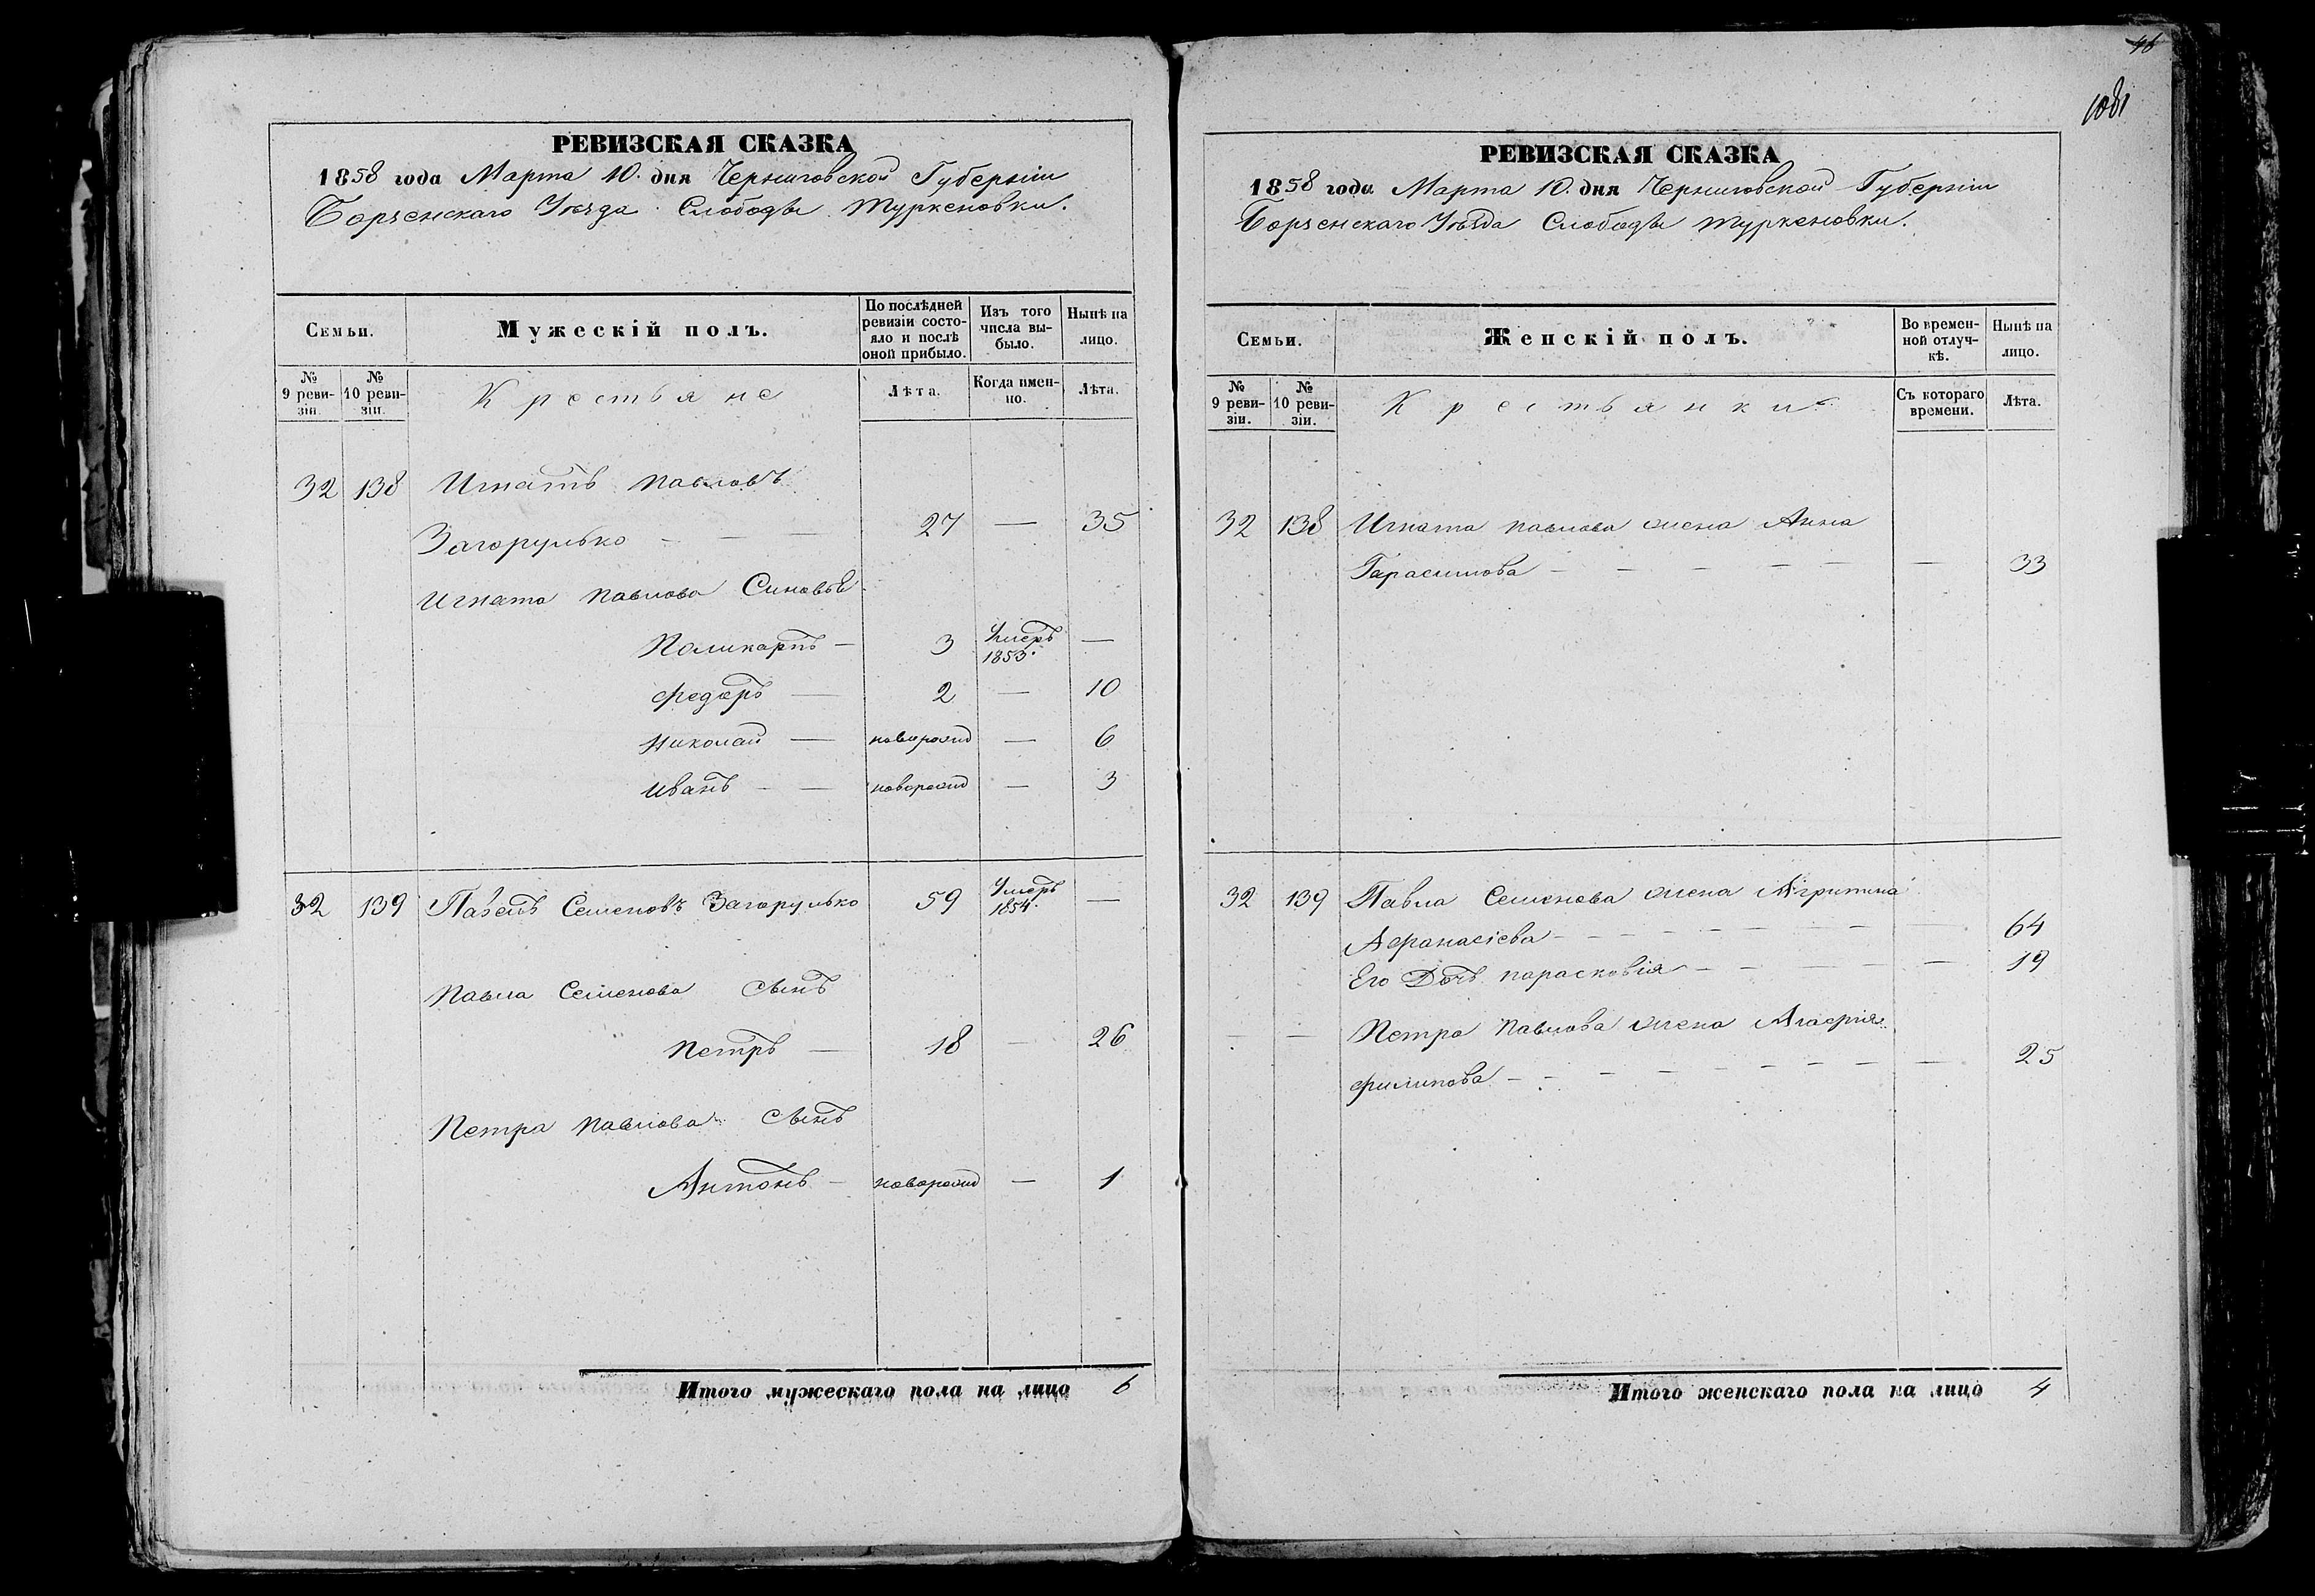 РЕВИЗСКАЯ СКАЗКА
1858 года Марта 10. дня Черниговской Губерніи
Борзенскаго Уѣзда Слободы Туркеновки.
Семьи.
Мужескій полъ.
По послѣдней ревизіи состояло и послѣ оной прибыло.
Изъ того числа выбыло.
Нынѣ на лицо.
№ 9 ревизіи.
№ 10 ревизіи.
Крестьяне
Лѣта.
Когда именно.
Лѣта.
32 138 Игнатъ Павловъ
Загорулько — — — 27 — 35
Игната Павлова Синовья
Поликарпъ — 3 Умеръ 1853. —
Федоръ — 2 — 10
Николай — новорожд — 6
Иванъ — — новорожд — 3
32 139 Павелъ Семеновъ Загорулько 59 Умеръ 1854. —
Павла Семенова Сынъ
Петръ — 18 — 26
Петра Павлова Сынъ
Антонъ — новорожд — 1
Итого мужескаго пола на лицо 6
46
РЕВИЗСКАЯ СКАЗКА
1858 года Марта 10. дня Черниговской Губерніи
Борзенскаго Уѣзда Слободы Туркеновки.
Семьи.
Женскій полъ.
Во временной отлучкѣ.
Нынѣ на лицо.
№ 9 ревизіи.
№ 10 ревизіи.
Крестьянки
Съ котораго времени.
Лѣта.
32 138 Игната Павлова жена Анна
Гарасимова — — — — — — 33
32 139 Павла Семенова жена Агрипина
Афанасіева — — — — — — 64
Его Дочь Парасковія — — — — 19
— — Петра Павлова жена Агафія
Филипова — — — — — — — 25
Итого женскаго пола на лицо 4